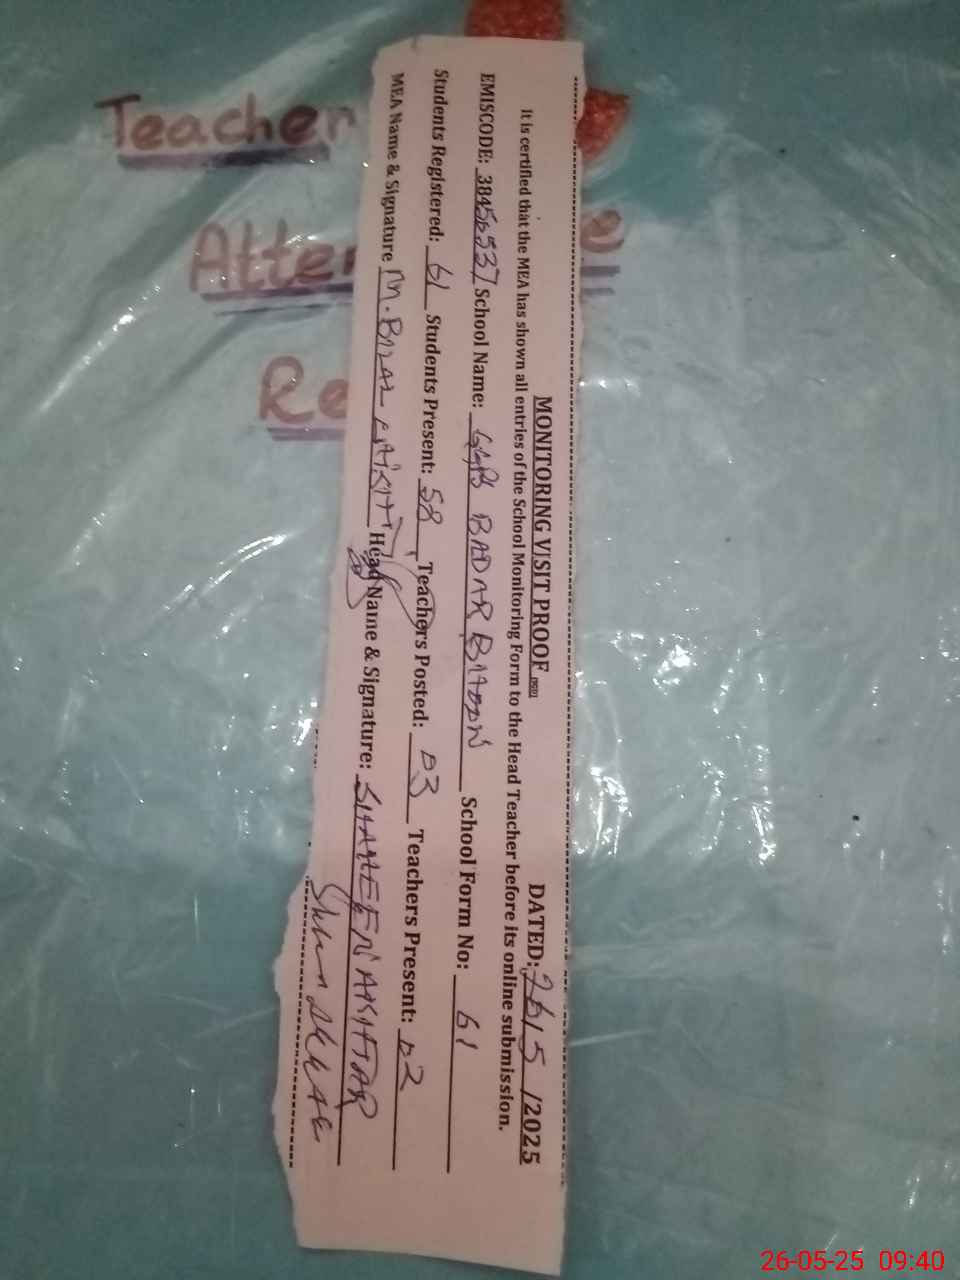 Teacher
Atten e
Re
MONITORING VISIT PROOF DATED: 26/5/2025
It is certified that the MEA has shown all entries of the School Monitoring Form to the Head Teacher before its online submission.
EMISCODE: 38456537 School Name: GGPS BADAR School Form No: 61
Students Registered: 61 Students Present: 58 Teachers Posted: 03 Teachers Present: 02
MEA Name & Signature M. Head Name & Signature: SHAHEEN AKHTAR
26-05-25 09:40